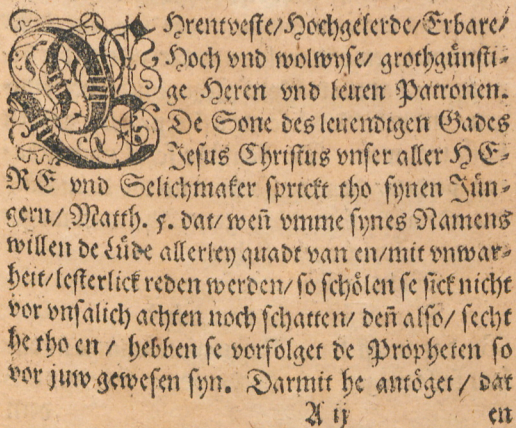 EHrentveste/Hochgelerde/Erbare/
Hoch vnd wolwyse/ grothgünsti-
ge Heren vnd leuen Patronen.
De Sone des leuendigen Gades
Jesus Christus vnser aller HE-
RE vnd Selichmaker sprickt tho synen Jün-
gern/ Matth. 5. dat/ weñ vmme synes Namens
willen de Lüde allerley quadt van en/ mit vnwar-
heit/ lesterlick reden werden/ so schölen se sick nicht
vor vnsalich achten noch schatten/ deñ also/ secht
he tho en/ hebben se vorfolget de Propheten so
vor juw gewesen syn. Darmit he antöget/ dat
A ij en